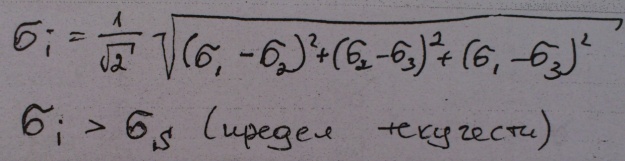 σᵢ = 1/√2 √(σ₁ - σ₂)² + (σ₂ - σ₃)² + (σ₁ - σ₃)²
σᵢ > σₛ (предел текучести)